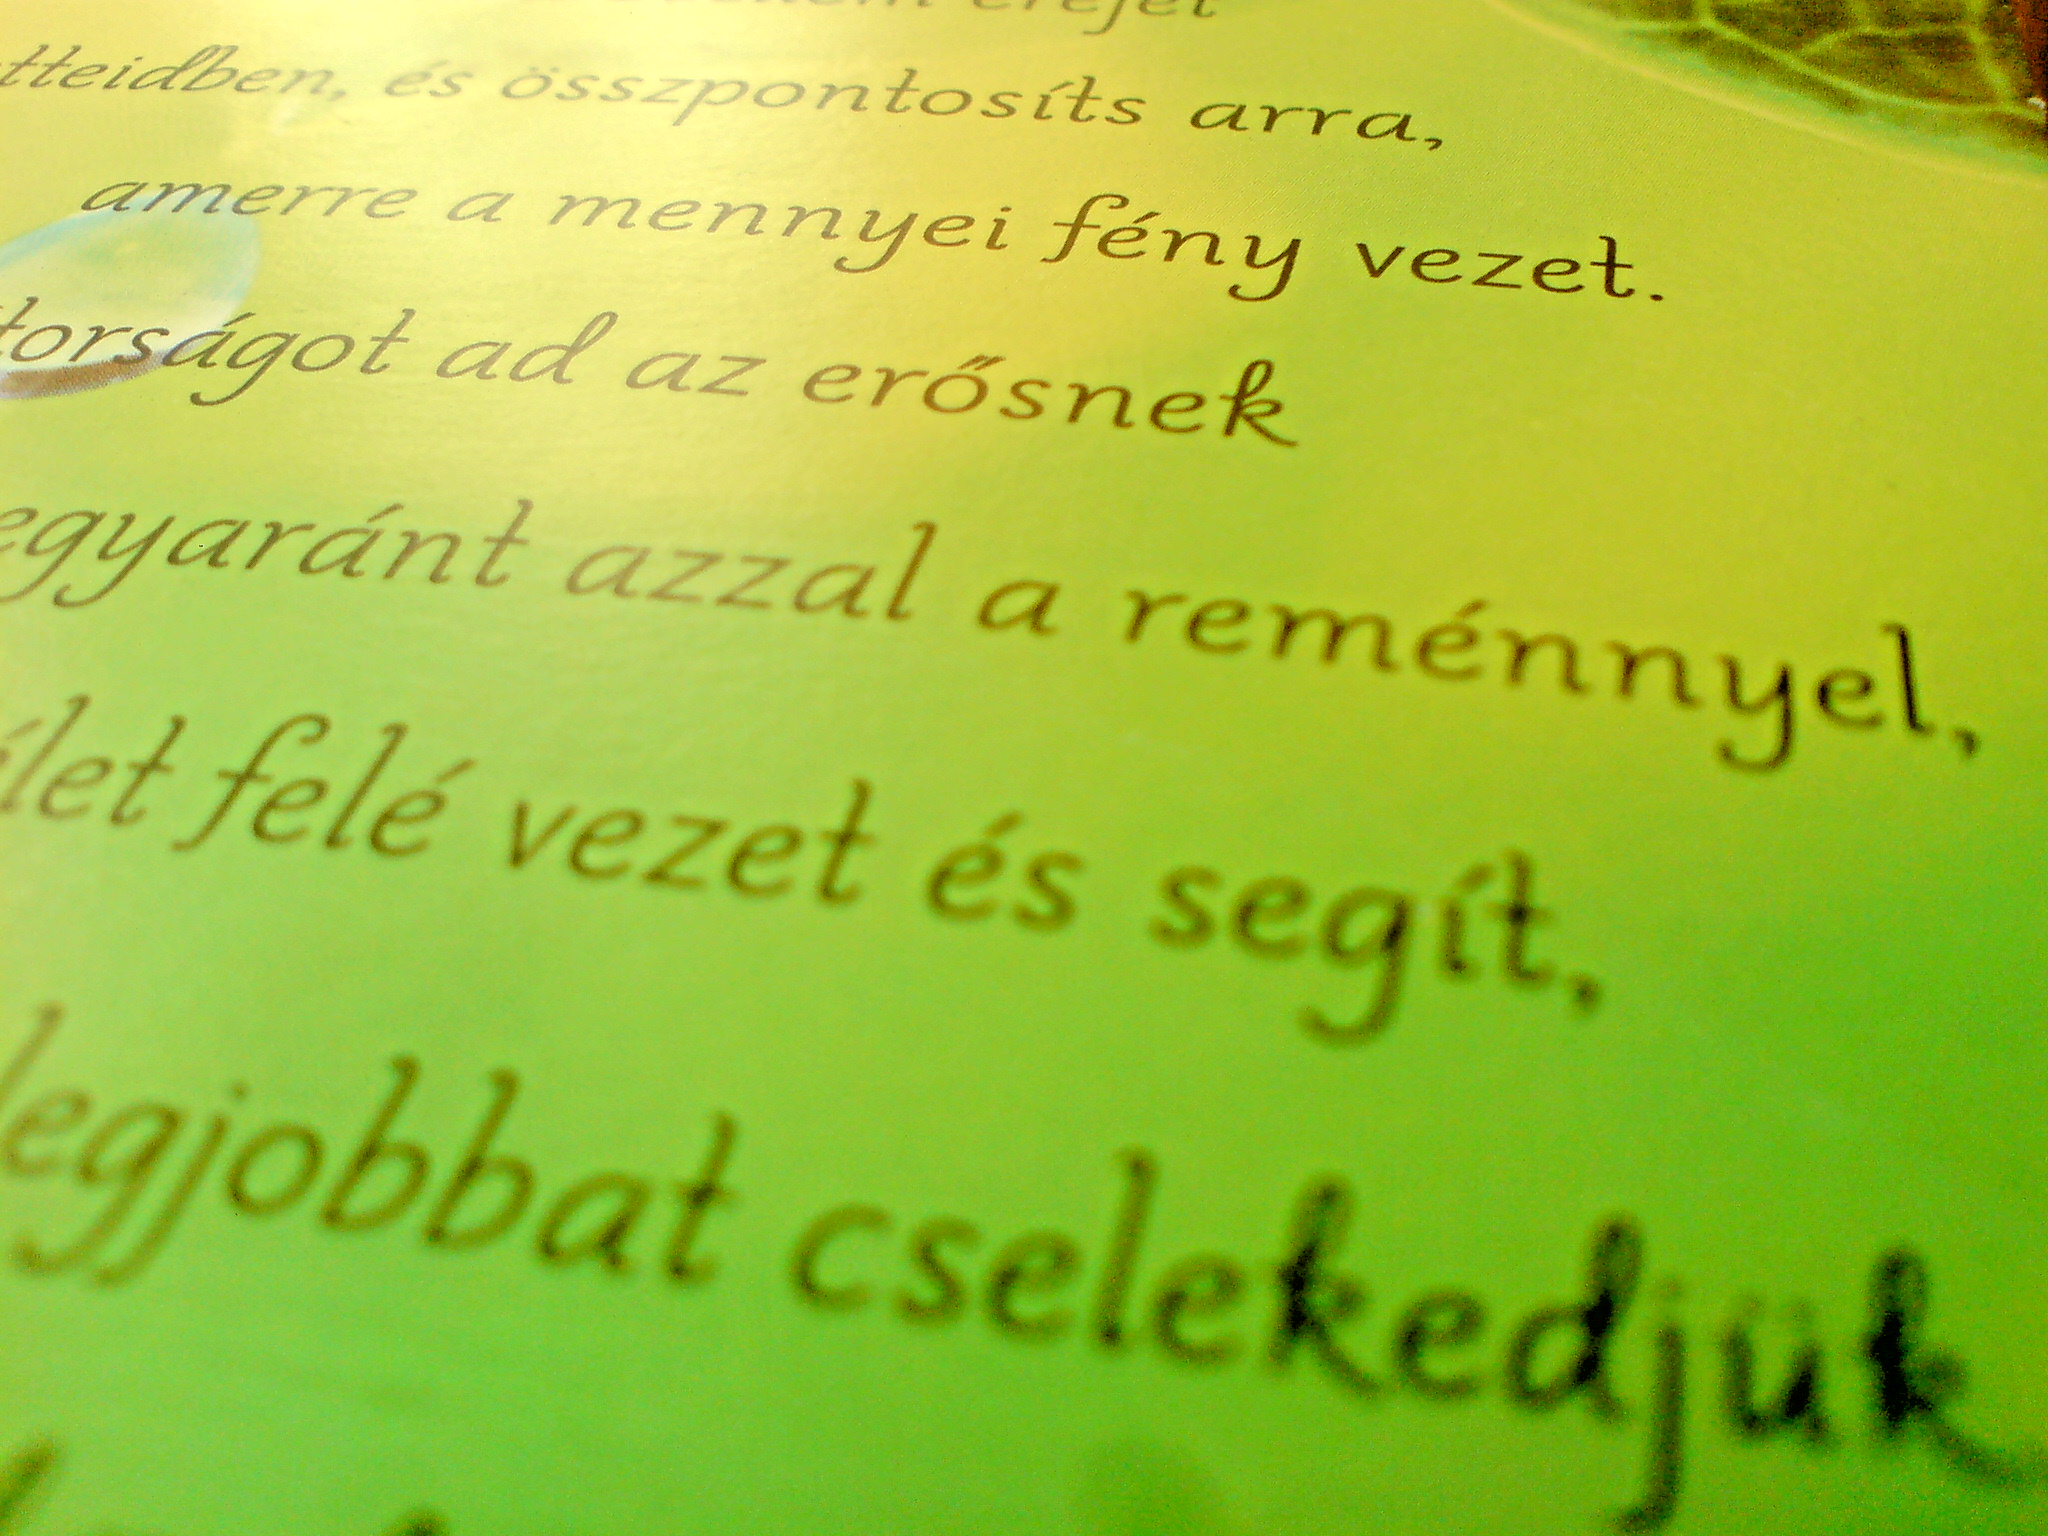 erejét
tteidben, és összpontosíts arra,
amerre a mennyei fény vezet.
torságot ad az erősnek
egyaránt azzal a reménnyel,
élet felé vezet és segít,
legjobbat cselekedjük